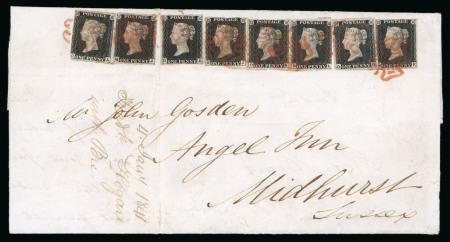 POSTAGE POSTAGE POSTAGE POSTAGE POSTAGE POSTAGE POSTAGE POSTAGE
ONE PENNY ONE PENNY ONE PENNY ONE PENNY ONE PENNY ONE PENNY ONE PENNY ONE PENNY
Mr John Gosden
Angel Inn
Midhurst
Sussex
1841